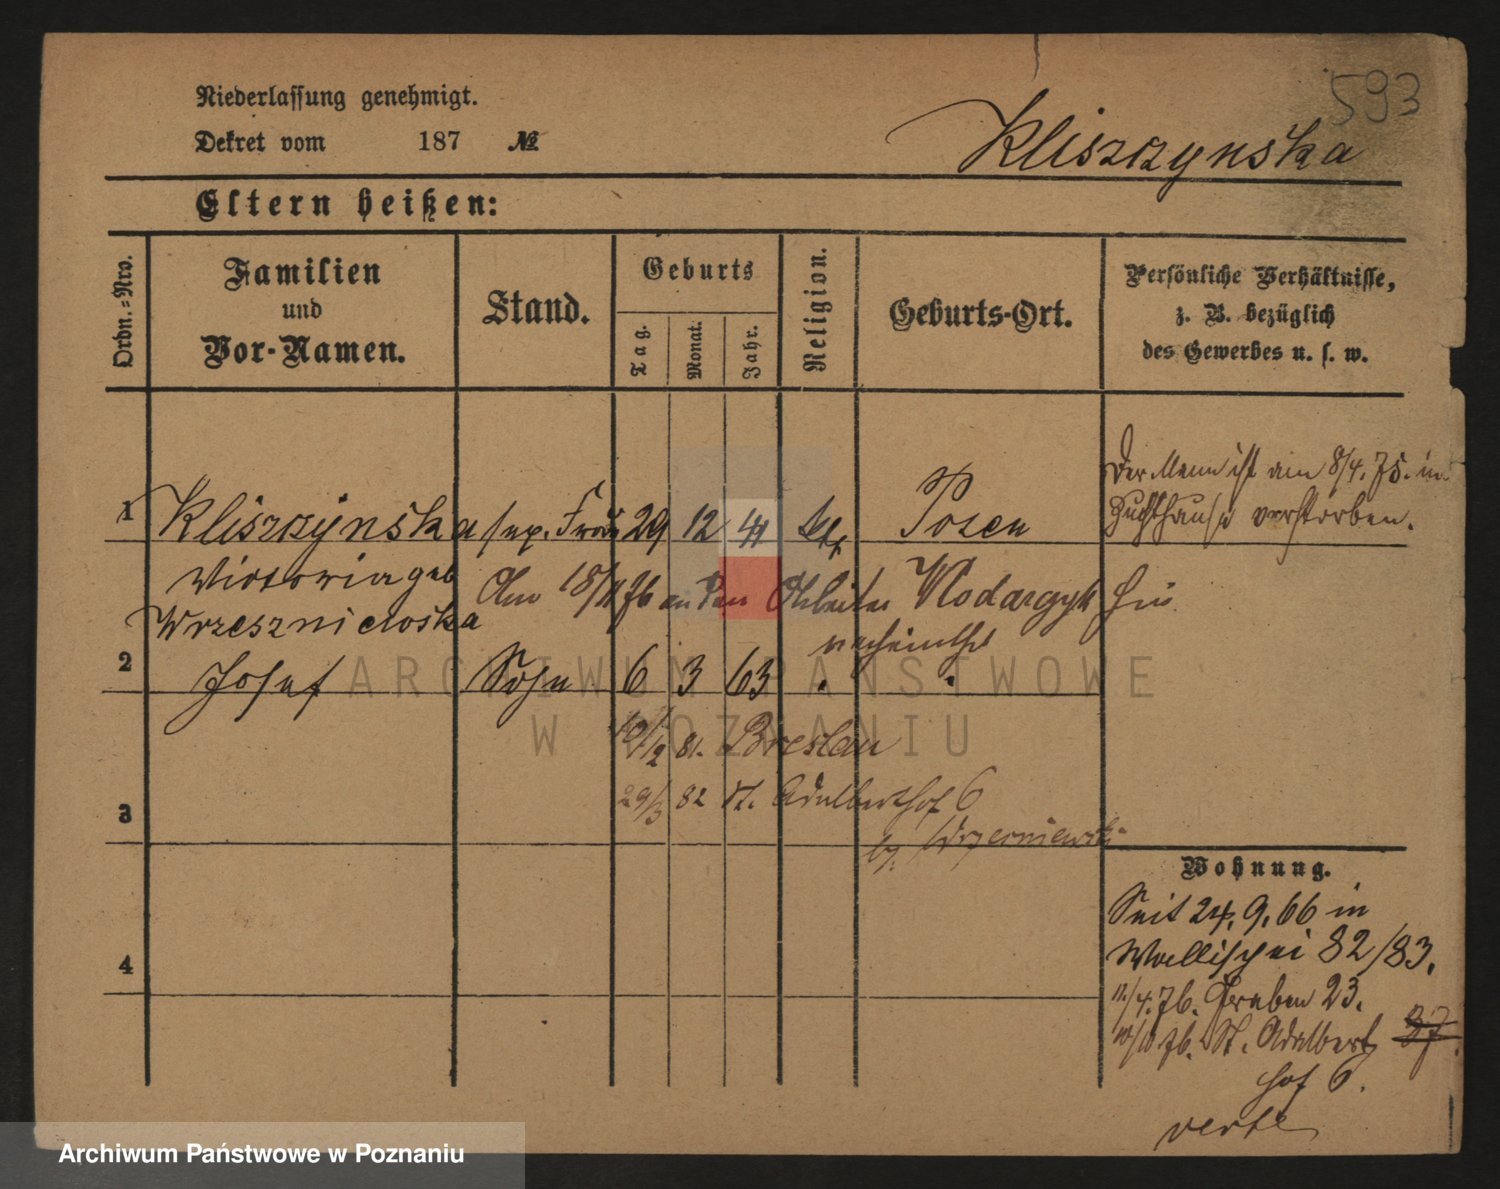 593
Niederlassung genehmigt.
Dekret vom 187 №
Kliszczynska
Eltern heißen:
Ordn.-Nro.
Familien
und
Vor-Namen.
Stand.
Geburts
Tag.
Monat.
Jahr.
Religion.
Geburts-Ort.
Persönliche Verhältnisse,
z. B. bezüglich
des Gewerbes u. s. w.
Der Mann ist am 8/4. 75. im
Zuchthause verstorben.
1 Kliszczynska sep. Frau 29 12 41 kth Posen
Victoria geb
Wrzesniewska
Am 18/11 76 an den Arbeiter Wlodarzyk hier
verheirathet
2 Josef Sohn 6 3 63 " "
ARCHIWUM PAŃSTWOWE
W POZNANIU
/12 81. Breslau
29/3 82 St. Adalberthof 6
by. Wrzesniewski
3
4
Wohnung.
Seit 24. 9. 66 in
Wallischei 82/83.
11./4. 76. Graben 23.
10/10 76. St. Adalbert 37.
hof 6.
verte
Archiwum Państwowe w Poznaniu